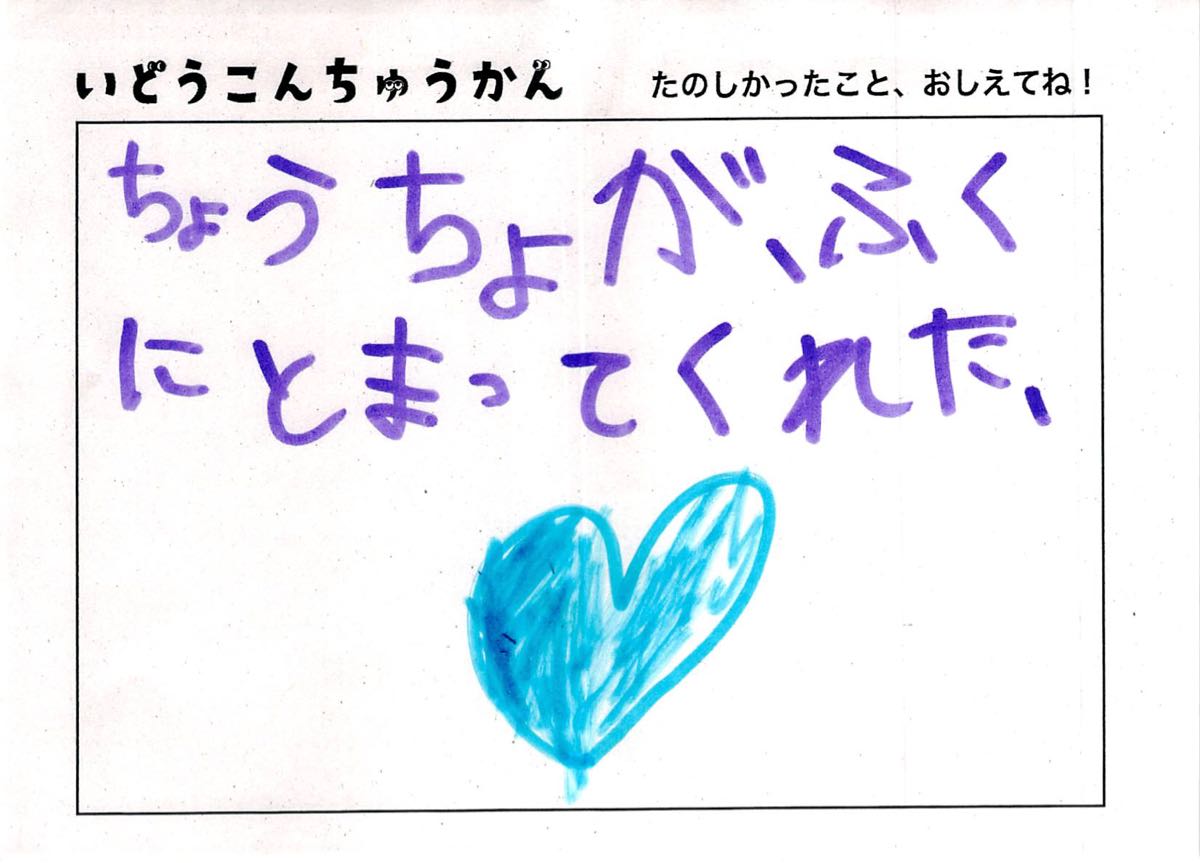 いどうこんちゅうかん
たのしかったこと、おしえてね！
ちょうちょが、ふく
にとまってくれた、